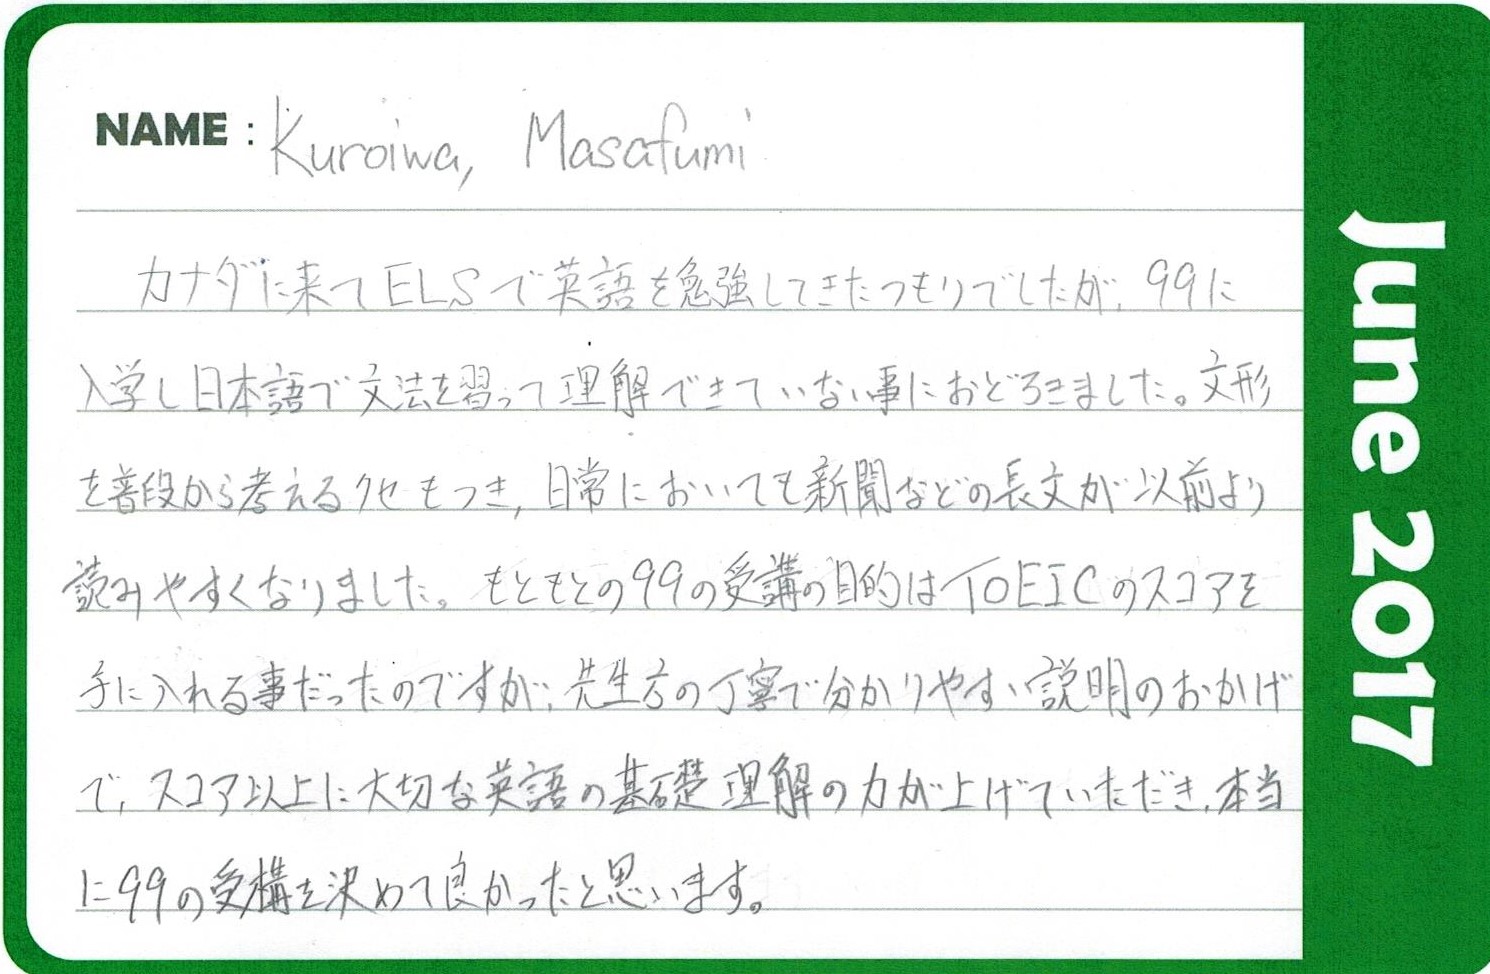 NAME : Kuroiwa, Masafumi
カナダに来てELSで英語を勉強してきたつもりでしたが、99に
入学し日本語で文法を習って理解できていない事におどろきました。文形
を普段から考えるクセもつき、日常においても新聞などの長文が以前より
読みやすくなりました。もともとの99の受講の目的はTOEICのスコアを
手に入れる事だったのですが、先生方の丁寧で分かりやすい説明のおかげ
で、スコア以上に大切な英語の基礎理解の力が上げていただき、本当
に99の受構を決めて良かったと思います。
June 2017